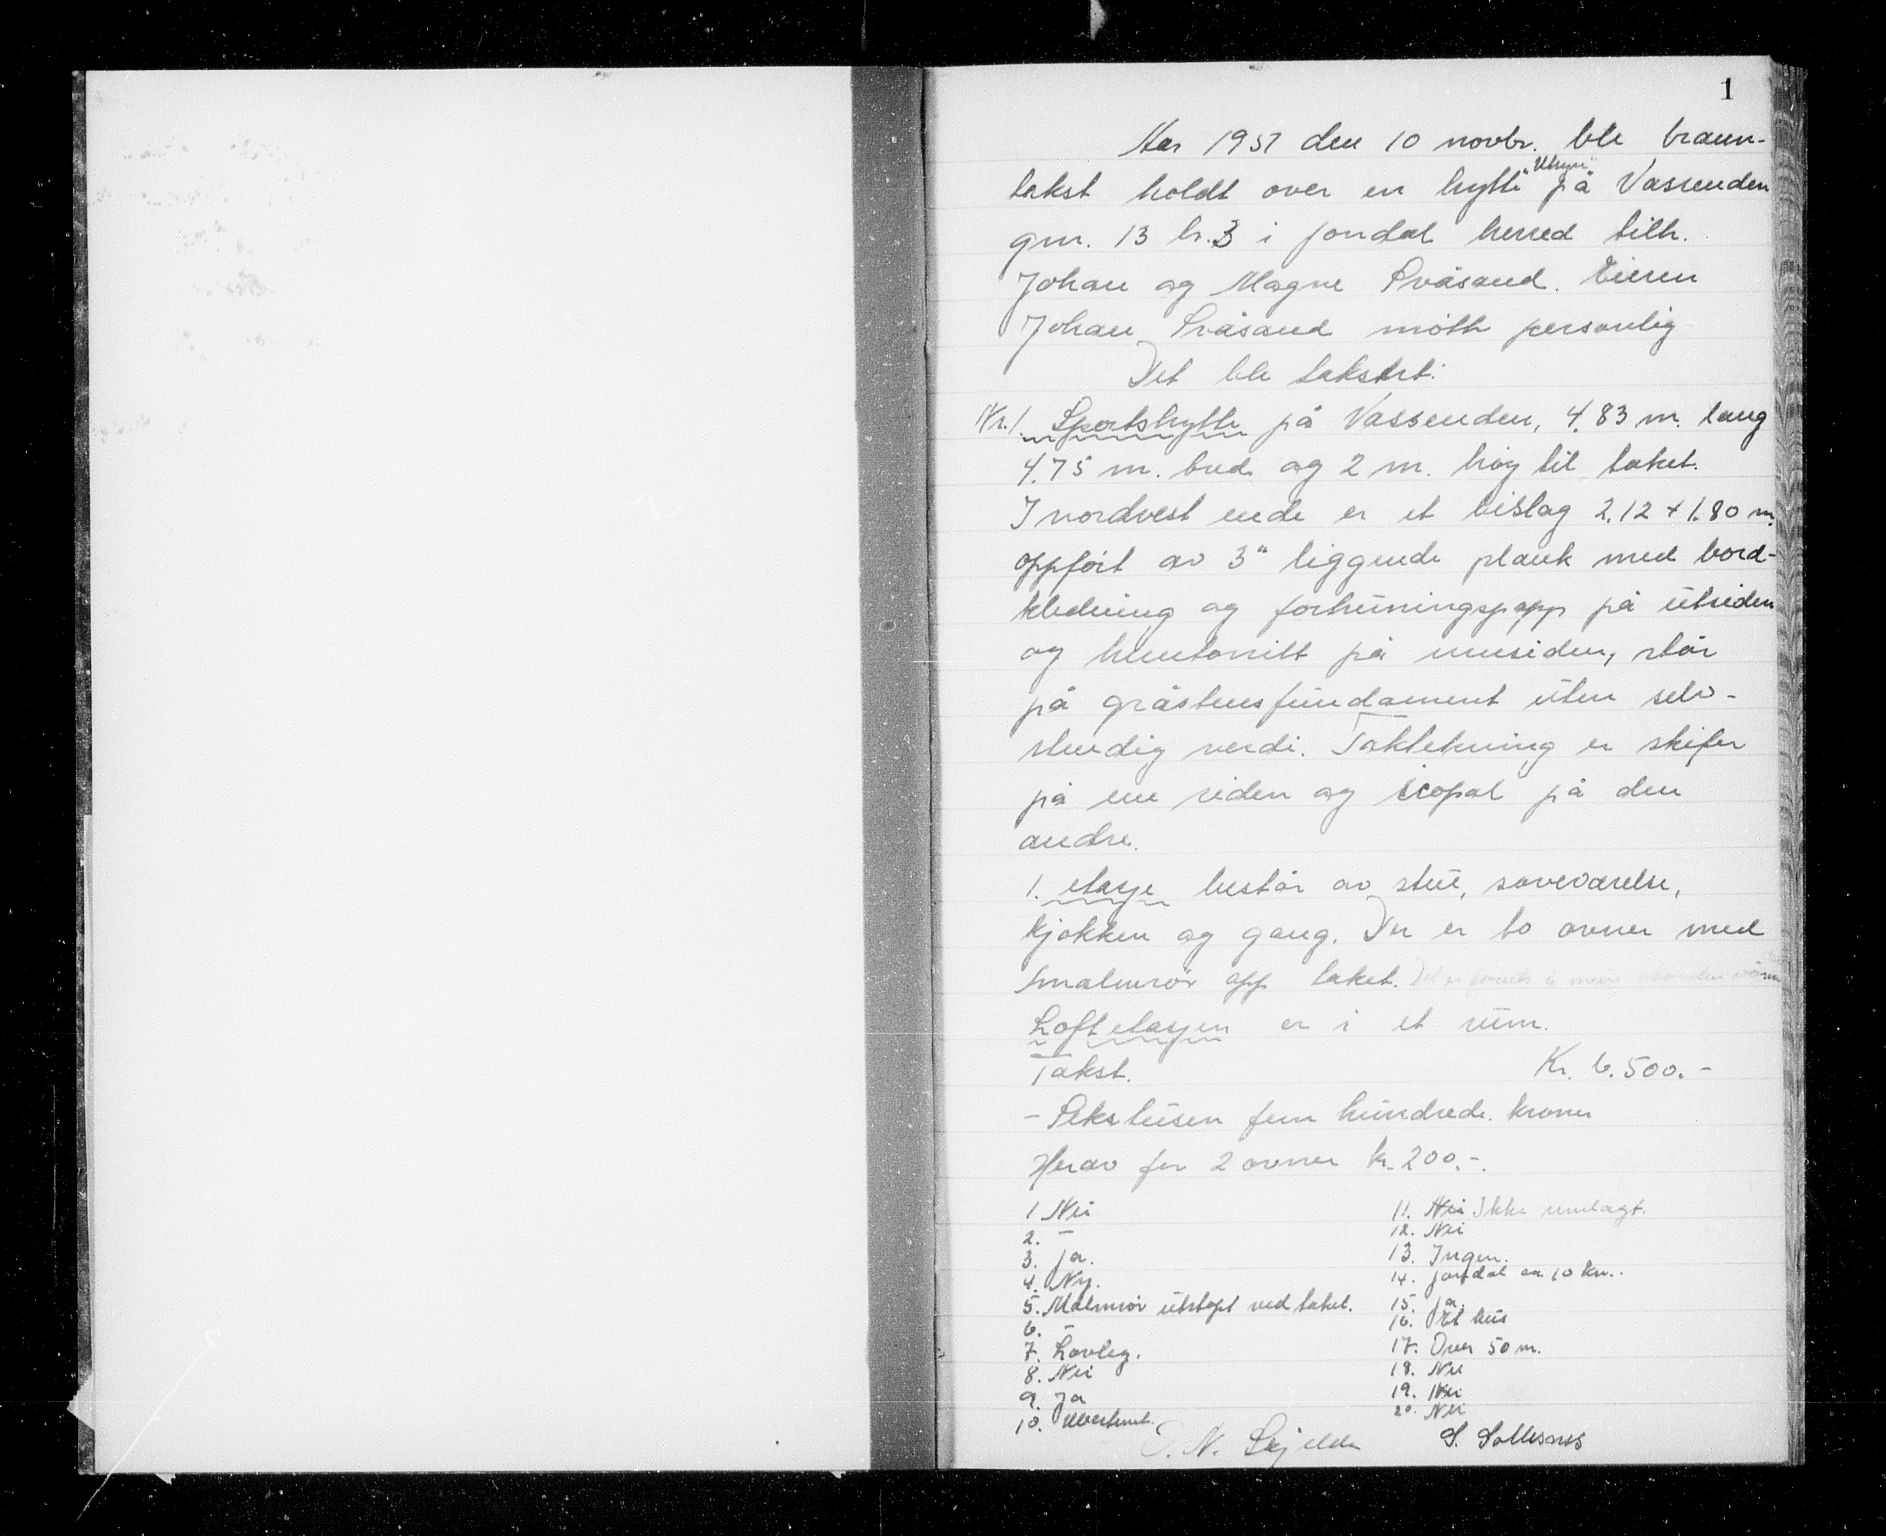 1
Aar 1957 den 10 novbr. ble brann-
takst holdt over en hytte "Utsyn" på Vassenden
gnr. 13 br. 3 i Jondal herred tilh.
Johan og Magne Svåsand. Eieren
Johan Svåsand møtte personlig
Det ble takstert:
Nr. 1. Sportshytte på Vassenden, 4.83 m. lang
4.75 m. bred og 2 m. høy til taket.
I nordvest ende er et bislag 2.12 + 1.80 m.
oppført av 3" liggende plank med bord-
kledning og forhuningspapp på utsiden
og huntonitt på innsiden, står
på gråstensfundament uten selv-
stendig verdi. Taktekning er skifer
på ene siden og icopal på den
andre.
1. etasje består av stue, soveværelse,
kjøkken og gang. Der er to ovner med
smalmrør opp taket. Det er
Loftetasjen er i et rum.
Takst. Kr. 6.500.-
- Sekstusen fem hundrede kroner
Herav for 2 ovner kr. 200.-.
1 Nei
2. -
3. Ja.
4. Ny.
5. Malmrør utstøpt ved taket.
6. -
7. Lovleg.
8. Nei
9. Ja
10. Ubestemt.
11. Nei Ikke innlagt.
12. Nei
13. Ingen.
14. Jondal ca. 10 km.
15. Ja
16. Et hus
17. Over 50 m.
18. Nei
19. Nei
20. Nei
N. Skjelde S. Sollesnes